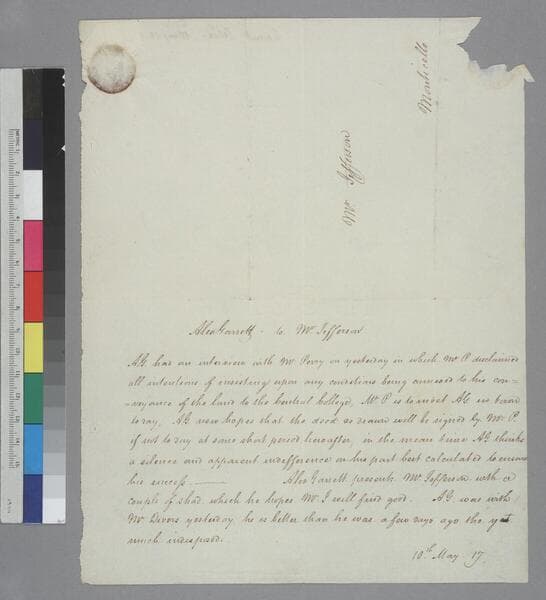 Monticello
Mr Jefferson
Alex Garrett to Mr Jefferson
AG had an interview with Mr Perry on yesterday in which Mr P disclaimed
all intentions of insisting upon any conditions being annexed to his con-
-veyance of the land to the Central Colledge, Mr P is to meet AG in
to day, AG now hopes that the deed as drawn will be signed by Mr P.
if not to day at some short period hereafter, in the mean time AG thinks
a silence and apparent indefference on his part best calculated to ensure
his success. ——— Alex Garrett presents Mr Jefferson with a
couple of shad which he hopes Mr J will find good. AG was with
Mr Divers yesterday, he is better than he was a few days ago tho yet
much indisposed.
10th May 17